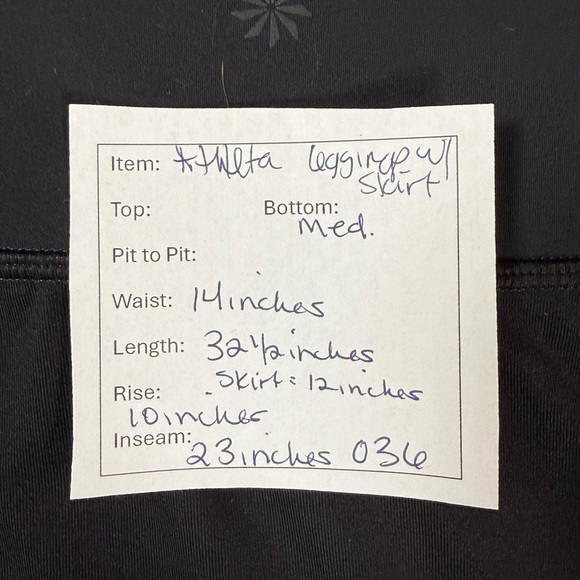 Item: Athleta leggings w/
skirt
Top: Bottom:
Med.
Pit to Pit:
Waist: 14 inches
Length: 32 1/2 inches
Skirt: 12 inches
Rise:
10 inches
Inseam:
23 inches 036